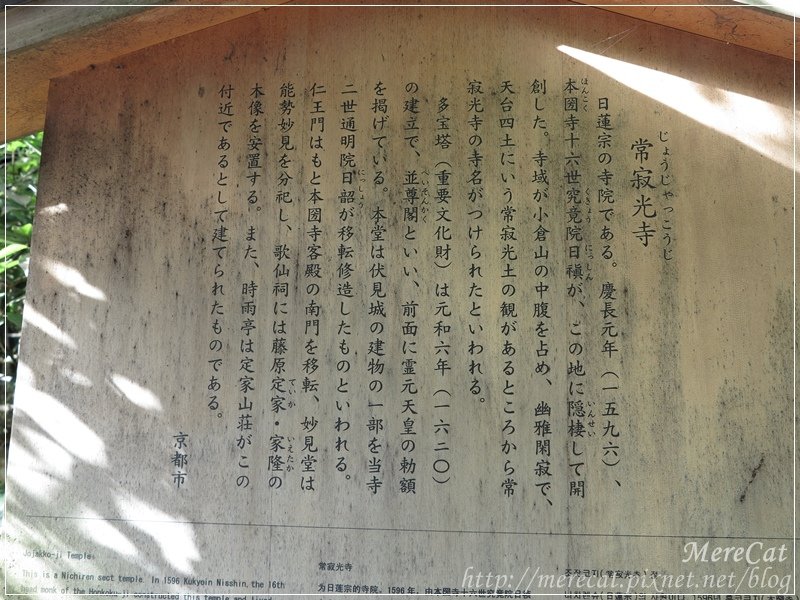 じょうじゃっこうじ
常寂光寺
日蓮宗の寺院である。慶長元年（一五九六）、
ほんこく くきょう にっしん いんせい
本圀寺十六世究竟院日禛が、この地に隠棲して開
創した。寺域が小倉山の中腹を占め、幽雅閑寂で、
天台四土にいう常寂光土の観があるところから常
寂光寺の寺名がつけられたといわれる。
多宝塔（重要文化財）は元和六年（一六二〇）
へいそんかく
の建立で、並尊閣といい、前面に霊元天皇の勅額
を掲げている。本堂は伏見城の建物の一部を当寺
にっしょう
二世通明院日韶が移転修造したものといわれる。
仁王門はもと本圀寺客殿の南門を移転、妙見堂は
能勢妙見を分祀し、歌仙祠には藤原定家・家隆の
ていか いえたか
木像を安置する。また、時雨亭は定家山荘がこの
付近であるとして建てられたものである。
京都市
Jojakko-ji Temple
This is a Nichiren sect temple. In 1596 Kukyoin Nisshin, the 16th
head monk of the Honkoku-ji constructed this temple and lived
常寂光寺
为日莲宗的寺院，1596 年，由本圀寺十六世究竟院日禛
죠쟈코지(常寂光寺)
MereCat
http://merecat.pixnet.net/blog